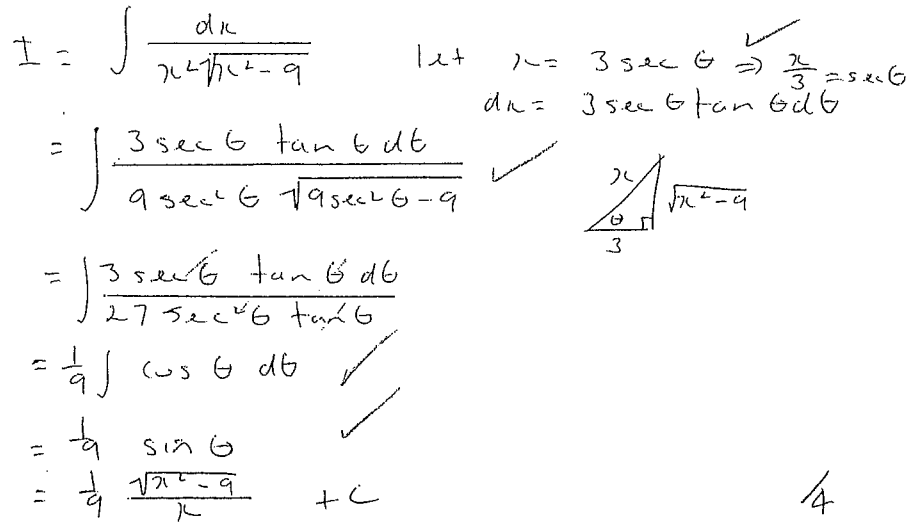 I = ∫ dx / (x² √(x² - 9))    let x = 3 sec θ ⇒ x/3 = sec θ
dx = 3 sec θ tan θ dθ
= ∫ (3 sec θ tan θ dθ) / (9 sec² θ √(9 sec² θ - 9))
x √(x² - 9)
θ
3
= ∫ (3 sec θ tan θ dθ) / (27 sec² θ tan θ)
= 1/9 ∫ cos θ dθ
= 1/9 sin θ
= 1/9 √(x² - 9) / x + C
/4